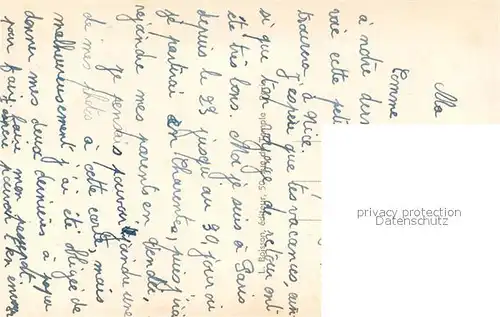 Ma
Comme
à notre dern
voic cette peti
trouvera à nice.
J'espère que tes vacances, ain
si que ton voyage de retour ont
été très bons. Moi je suis à Paris
depuis le 23 jusqu'au 30, jour où
je partirai en Charente, puis j'irai
rejoindre mes parents en Vendée.
Je pensais pouvoir joindre une
de mes photos à cette carte, mais
malheureusement j'ai été obligée de
donner mes deux dernières à papa
pour faire faire mon passeport
pouvoir t'en envoy
privacy protection
Datenschutz